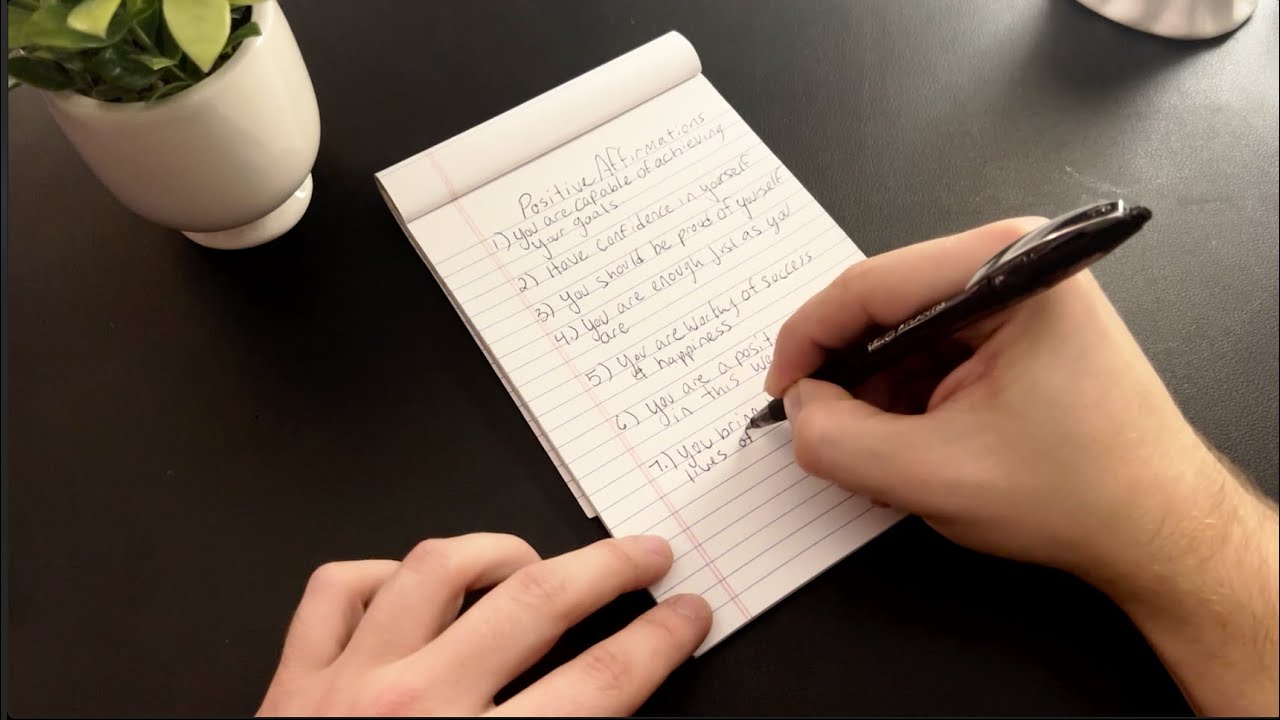 Positive Affirmations
1.) You are capable of achieving
your goals
2) Have confidence in yourself
3) You should be proud of yourself
4.) You are enough just as you
are
5) You are worthy of success
& happiness
6) You are a
in this
7.) You
lives of